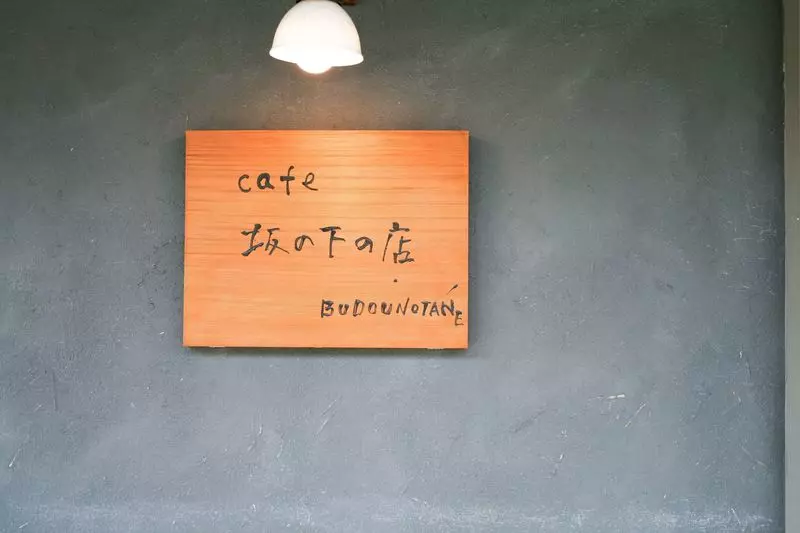 cafe
坂の下の店
BUDOUNOTANE